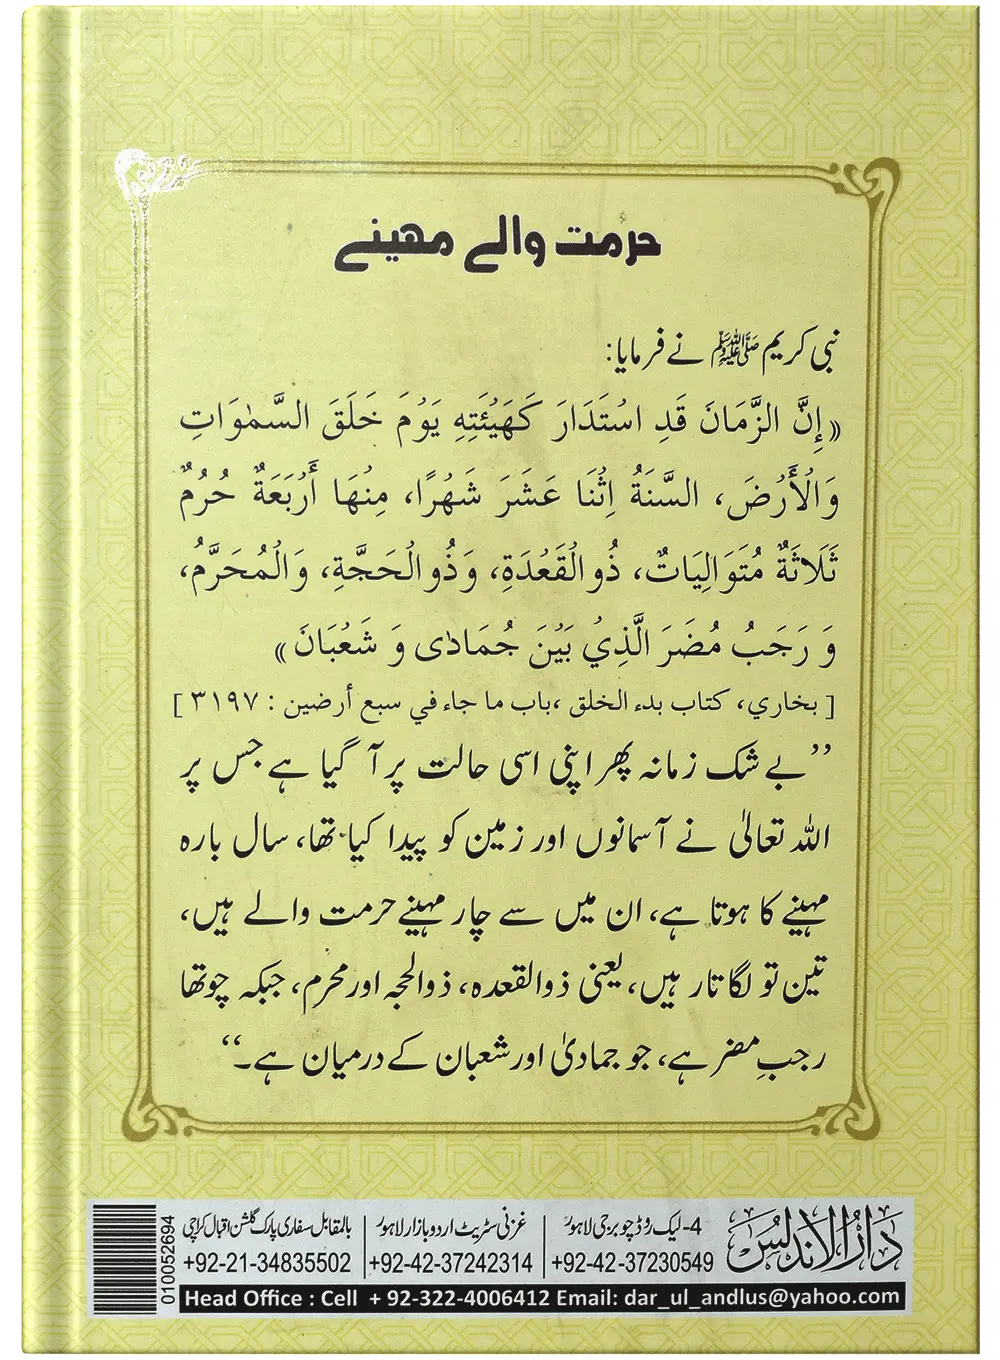 حرمت والے مہینے
نبی کریم ﷺ نے فرمایا:
«إِنَّ الزَّمَانَ قَدِ اسْتَدَارَ كَهَيْئَتِهِ يَوْمَ خَلَقَ السَّمٰوَاتِ
وَالْأَرْضَ، السَّنَةُ اثْنَا عَشَرَ شَهْرًا، مِنْهَا أَرْبَعَةٌ حُرُمٌ
ثَلَاثَةٌ مُتَوَالِيَاتٌ، ذُو الْقَعْدَةِ، وَذُو الْحَجَّةِ، وَالْمُحَرَّمُ،
وَ رَجَبُ مُضَرَ الَّذِيْ بَيْنَ جُمَادٰى وَ شَعْبَانَ»
[ بخاري، كتاب بدء الخلق ،باب ما جاء في سبع أرضين : ٣١٩٧ ]
’’بے شک زمانہ پھر اپنی اسی حالت پر آ گیا ہے جس پر
اللہ تعالیٰ نے آسمانوں اور زمین کو پیدا کیا تھا، سال بارہ
مہینے کا ہوتا ہے، ان میں سے چار مہینے حرمت والے ہیں،
تین تو لگا تار ہیں، یعنی ذوالقعدہ، ذوالحجہ اور محرم، جبکہ چوتھا
رجبِ مضر ہے، جو جمادیٰ اور شعبان کے درمیان ہے۔‘‘
دارالاندلس
4- لیک روڈ چوبرجی لاہور
+92-42-37230549
غزنی سٹریٹ اردو بازار لاہور
+92-42-37242314
بالمقابل سفاری پارک گلشن اقبال کراچی
+92-21-34835502
010052694
Head Office : Cell + 92-322-4006412 Email: dar_ul_andlus@yahoo.com